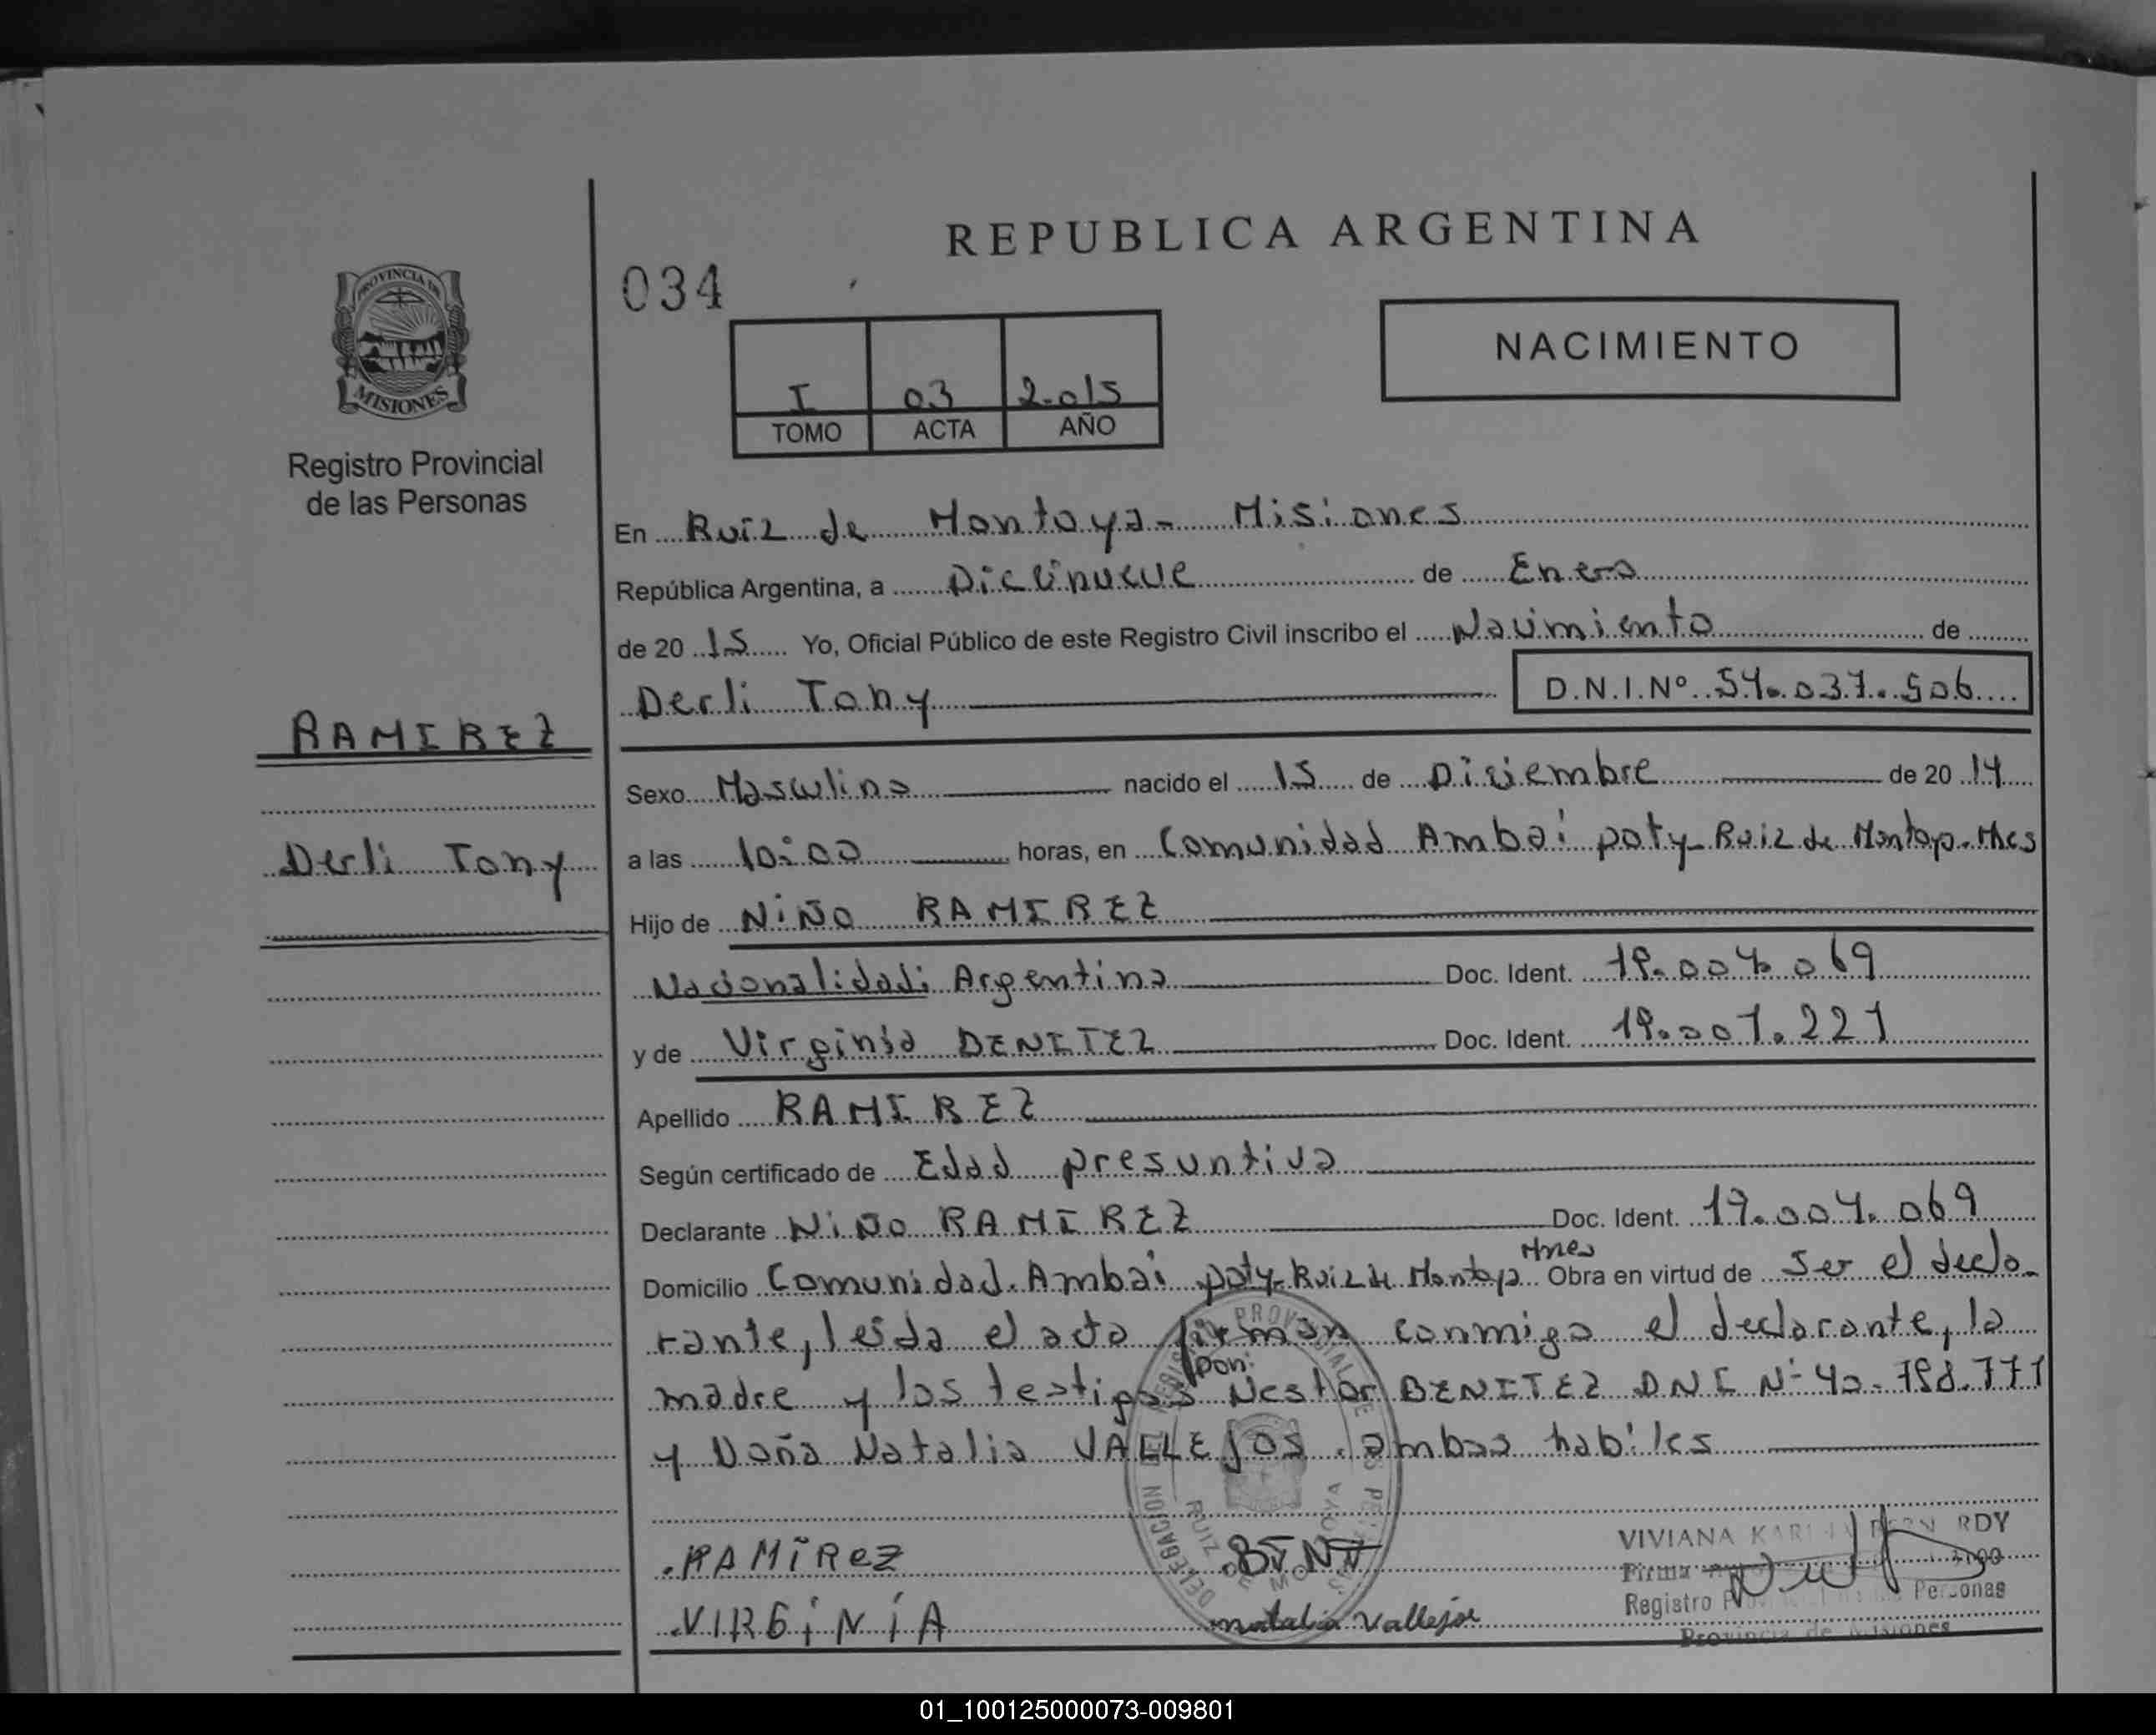 REPUBLICA ARGENTINA
034
NACIMIENTO
I 03 2.015
TOMO ACTA AÑO
PROVINCIA DE
MISIONES
Registro Provincial
de las Personas
RAMIREZ
Derli Tony
En Ruiz de Montoya - Misiones
República Argentina, a Diecinueve de Enero
de 20 15 Yo, Oficial Público de este Registro Civil inscribo el Nacimiento de
Derli Tony D.N.I.Nº 54.037.506
Sexo Masculino nacido el 15 de Diciembre de 20 14
a las 10:00 horas, en Comunidad Ambai poty - Ruiz de Montoya. Mnes
Hijo de NIÑO RAMIREZ
Nacionalidad: Argentina Doc. Ident. 19.004.069
y de Virginia BENITEZ Doc. Ident. 19.001.221
Apellido RAMIREZ
Según certificado de Edad presuntiva
Declarante NIÑO RAMIREZ Doc. Ident. 19.004.069
Mnes
Domicilio Comunidad Ambai poty - Ruiz de Montoya Obra en virtud de Ser el decla-
rante, leída el acta firman conmigo el declarante, la
madre y los testigos Don: Nestor BENITEZ DNI Nº 40.798.771
y Doña Natalia VALLEJOS. ambos habiles
RAMÍREZ
VIRGINIA
Natalia Vallejos
VIVIANA
Registro Personas
Provincia de Misiones
DELEGACION RUIZ
01_100125000073-009801